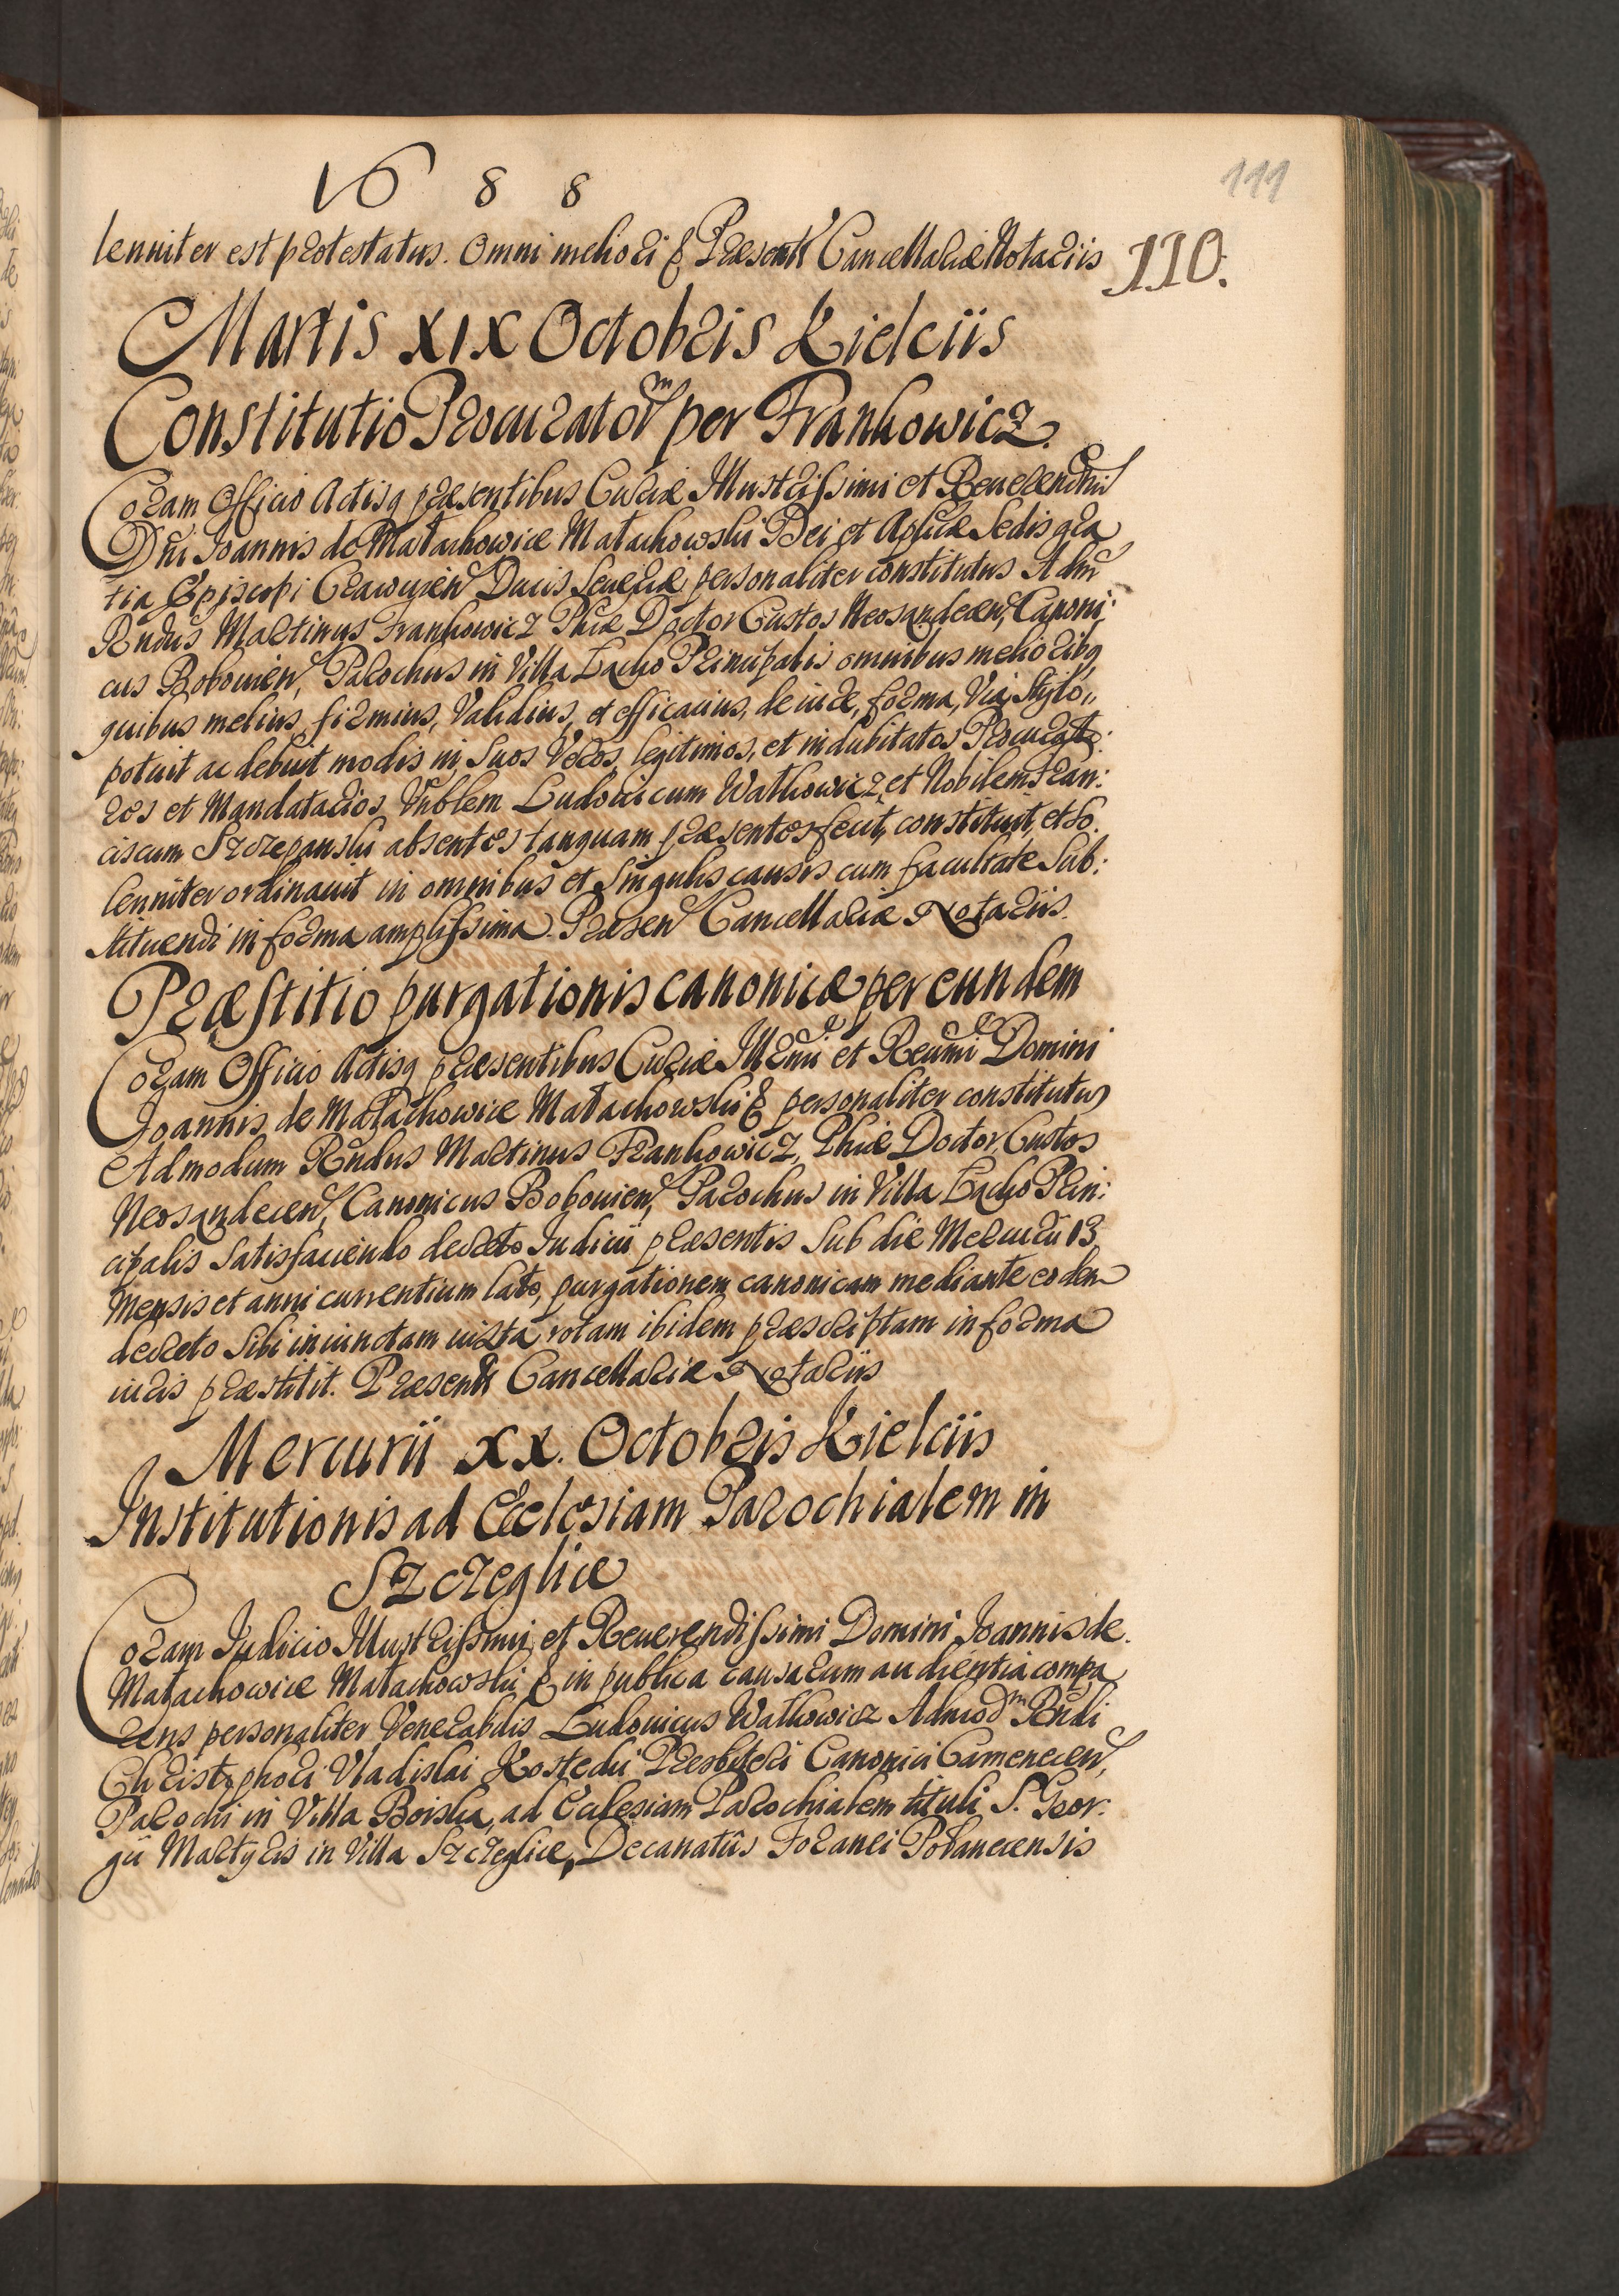 1688
111
lenniter est protestatus. Omni meliori & Præsentt Cancellariæ Notariis
110.
Martis XIX Octobris Kielciis
Constitutio Procuratorm per Frankowicz.
Coram Officio Actisq præsentibus Curiæ Illustrissimi et Reverendmi
Dni Joannis de Małachowice Małachowski Dei et Aplicæ Sedis gra
tia Episcopi Cracovien Ducis Severiæ personaliter constitutus Adm
Rndus Martinus Frankowicz Phiæ Doctor Custos Neosandecen, Canoni:
cus Bobovien, Parochus in Villa Łącko Principalis omnibus melioribq
quibus melius, firmius, Validius, et efficacius, de iure, forma, Via, Stylo,
potuit ac debuit modis in Suos Veros, legitimos, et indubitatos Procurato:
res et Mandatarios Vnblem Ludovicum Wathowicz et Nobilem Fran:
ciscum Szczepanski absentes tanquam præsentes fecit, constituit, et So
lenniter ordinavit in omnibus et Singulis causis cum facultate Sub:
stituendi in forma amplissima. Præsen Cancellariæ Notariis.
Præstitio purgationis canonicæ per eundem
Coram Officio Actisq præsentibus Curiæ Illrmi et Reumi Domini
Joannis de Małachowice Małachowski & personaliter constitutus
Admodum Rndus Martinus Frankowicz, Phiæ Doctor, Custos
Neosandecen, Canonicus Bobovien, Parochus in Villa Łącko Prin:
cipalis Satisfaciendo decreto Judicii præsentis Sub die Mercurii 13
Mensis et anni currentium lato, purgationem canonicam mediante eodem
decreto Sibi iniunctam iuxta rotam ibidem præscriptam in forma
iuris præstitit. Præsentt Cancellariæ Notariis
Mercurii XX. Octobris Kielciis
Institutionis ad Ecclesiam Parochialem in
Szczeglice
Coram Judicio Illustrissimi et Reverendissimi Domini Joannis de
Małachowice Małachowski & in publica causarum audientia compa
rens personaliter Venerabdis Ludovicus Wathowicz Admodm Rndi
Christophori Vladislai Kostecki Presbiteri Canonici Camenecen,
Parochi in Villa Boiska, ad Ecclesiam Parochialem tituli S. Geor:
gii Martyris in Villa Szczeglice, Decanatûs Foranei Połanecensis